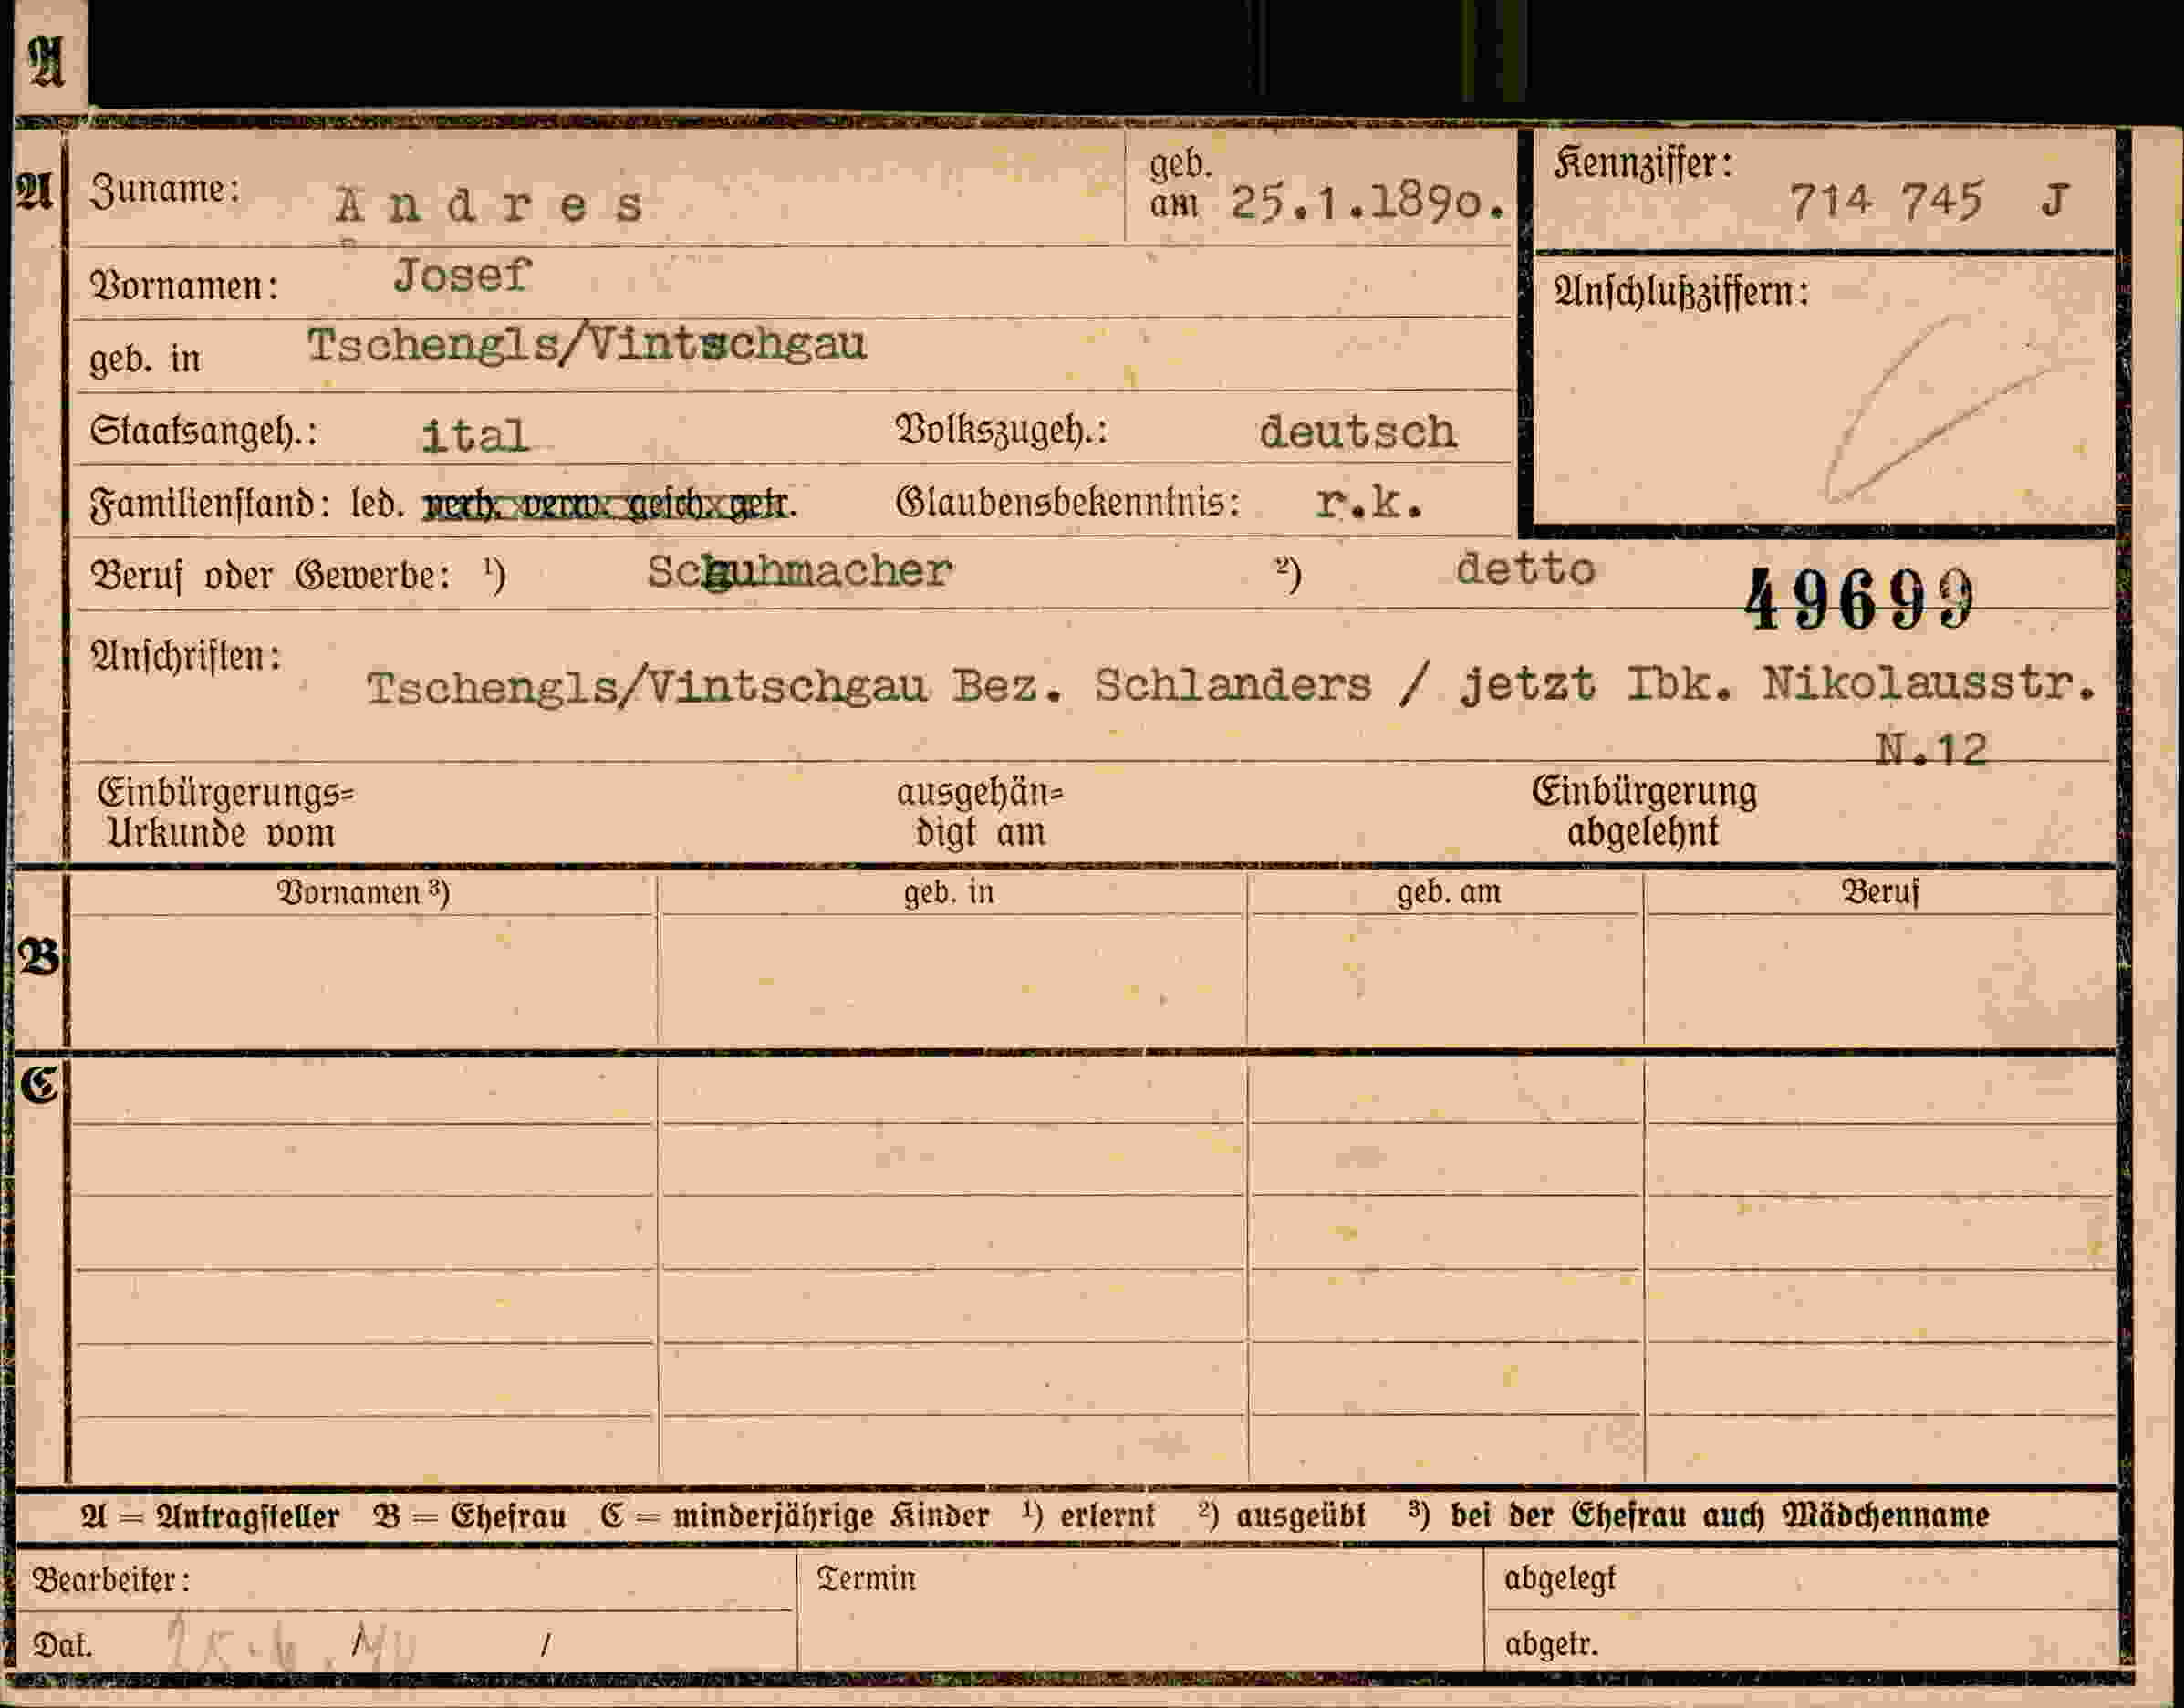 A
A Zuname: Andres geb. am 25.1.1890. Kennziffer: 714 745 J
Vornamen: Josef Anschlußziffern:
geb. in Tschengls/Vintschgau
Staatsangeh.: ital Volkszugeh.: deutsch
Familienstand: led. verh. verw. gesch. getr. Glaubensbekenntnis: r.k.
Beruf oder Gewerbe: ¹) Schuhmacher ²) detto 49699
Anschriften: Tschengls/Vintschgau Bez. Schlanders / jetzt Ibk. Nikolausstr.
N.12
Einbürgerungs= ausgehän= Einbürgerung
Urkunde vom digt am abgelehnt
Vornamen ³) geb. in geb. am Beruf
B
C
A = Antragsteller B = Ehefrau C = minderjährige Kinder ¹) erlernt ²) ausgeübt ³) bei der Ehefrau auch Mädchenname
Bearbeiter: Termin abgelegt
Dat. / / abgetr.